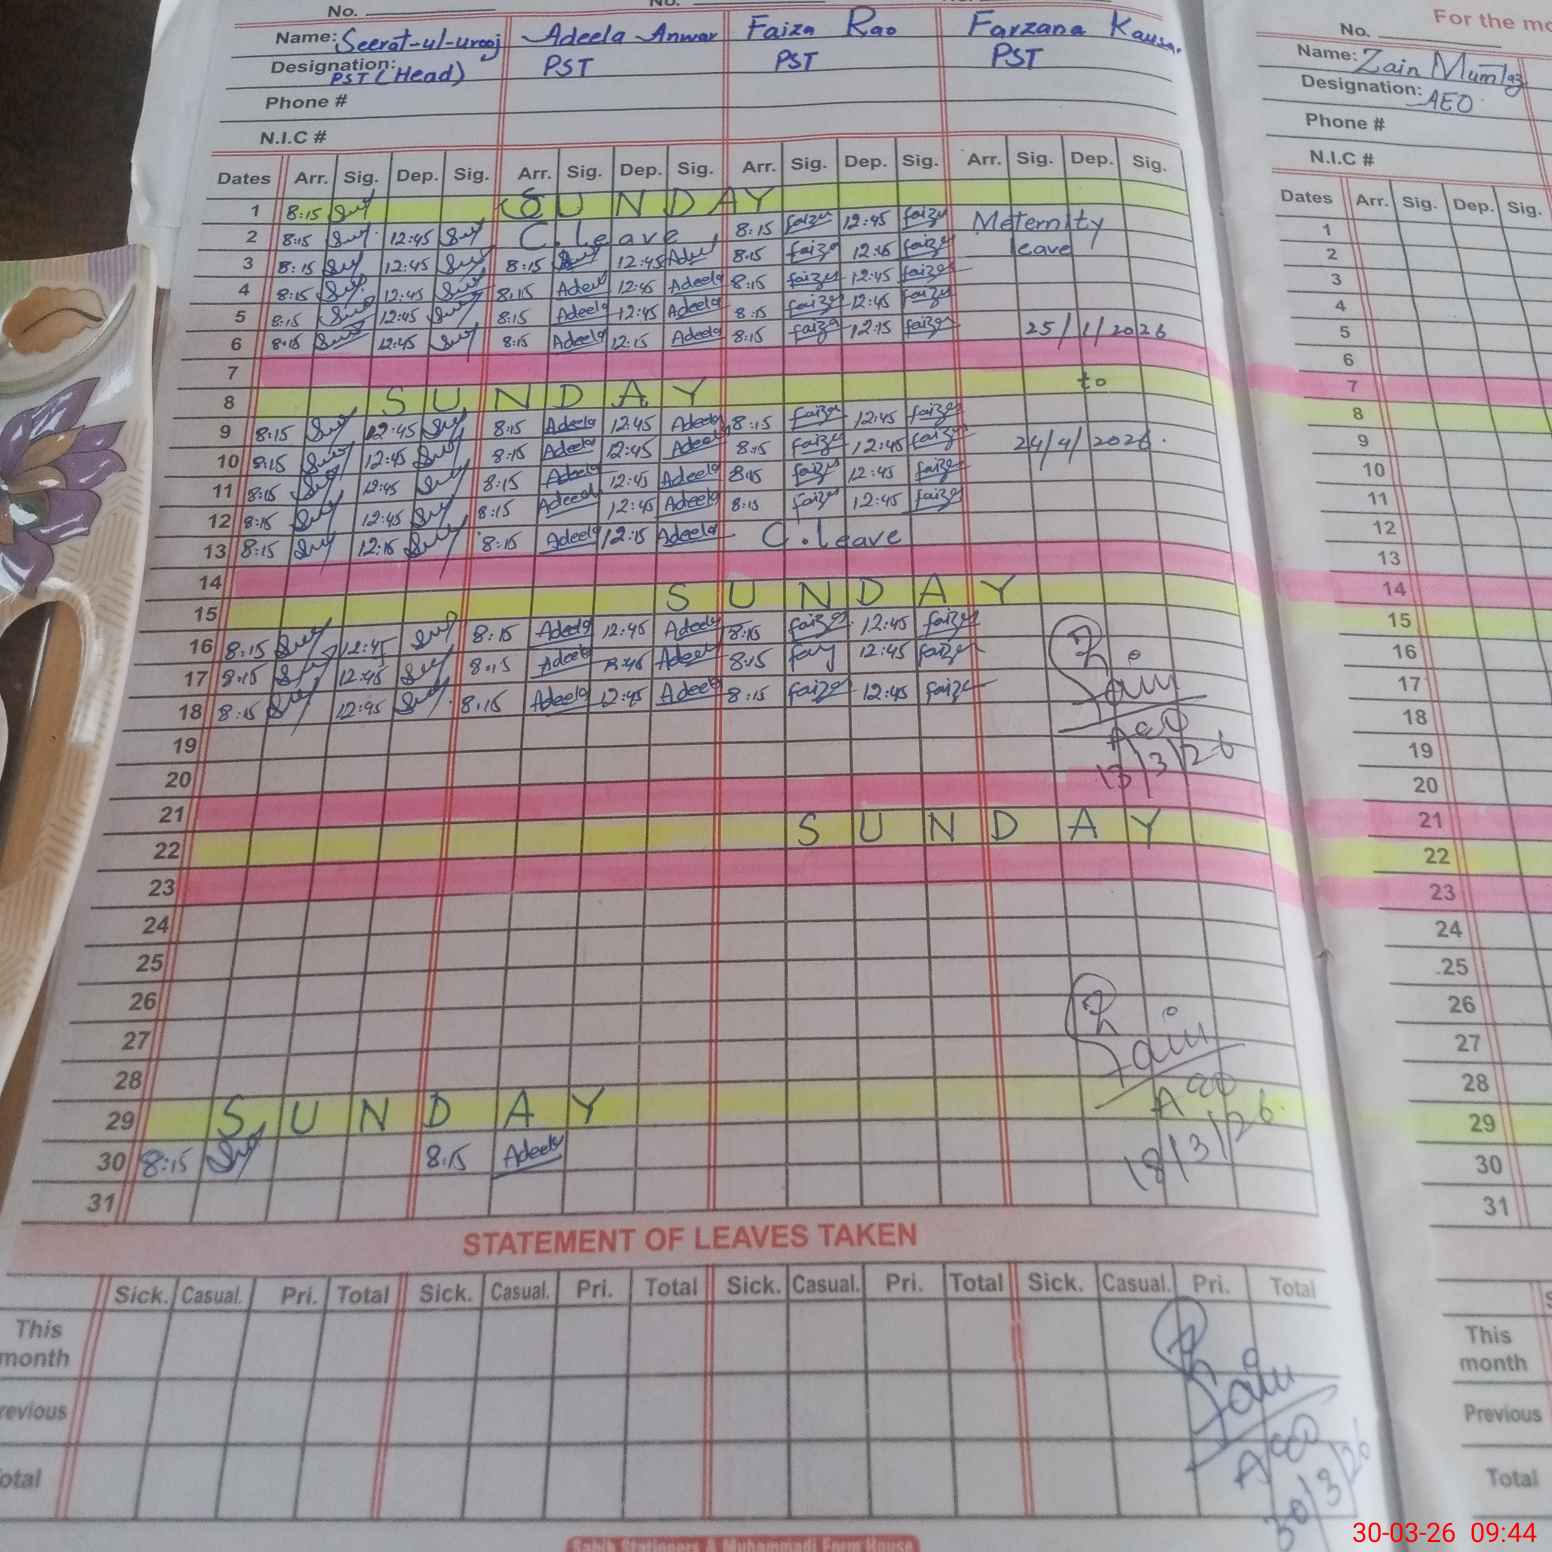 No. No.
Name: Seerat-ul-urooj Adeela Anwar Faiza Rao Farzana Kausar
Designation: PST (Head) PST PST PST
Phone #
N.I.C #
Dates Arr. Sig. Dep. Sig. Arr. Sig. Dep. Sig. Arr. Sig. Dep. Sig. Arr. Sig. Dep. Sig.
1 8:15 SUNDAY
2 8:15 12:45 C.leave 8:15 faiza 12:45 faiza Meternity
3 8:15 12:45 8:15 12:45 8:15 faiza 12:45 faiza leave
4 8:15 12:45 8:15 Adeela 12:45 Adeela 8:15 faiza 12:45 faiza
5 8:15 12:45 8:15 Adeela 12:45 Adeela 8:15 faiza 12:45 faiza
6 8:15 12:45 8:15 Adeela 12:15 Adeela 8:15 faiza 12:15 faiza 25/1/2026
7
8 SUNDAY to
9 8:15 12:45 8:15 Adeela 12:45 Adeela 8:15 faiza 12:45 faiza
10 8:15 12:45 8:15 Adeela 12:45 Adeela 8:15 faiza 12:45 faiza 24/4/2026.
11 8:15 12:45 8:15 Adeela 12:45 Adeela 8:15 faiza 12:45 faiza
12 8:15 12:45 8:15 Adeela 12:45 Adeela 8:15 faiza 12:45 faiza
13 8:15 12:15 8:15 Adeela 12:15 Adeela C.leave
14
15 SUNDAY
16 8:15 12:45 8:15 Adeela 12:45 Adeela 8:15 faiza 12:45 faiza
17 8:15 12:45 8:15 Adeela 12:45 Adeela 8:15 12:45 faiza
18 8:15 12:45 8:15 Adeela 12:45 Adeela 8:15 faiza 12:45 faiza
Zain
19 Aeo
20 13/3/26
21
22 SUNDAY
23
24
25
26
27 Zain
28 Aeo
29 SUNDAY
30 8:15 8:15 Adeela 18/3/26
31
STATEMENT OF LEAVES TAKEN
Sick. Casual. Pri. Total Sick. Casual. Pri. Total Sick. Casual. Pri. Total Sick. Casual. Pri. Total
This month
revious Zain
otal Aeo
30/3/26
For the mo
No.
Name: Zain Mumtaz
Designation: AEO
Phone #
N.I.C #
Dates Arr. Sig. Dep. Sig.
1
2
3
4
5
6
7
8
9
10
11
12
13
14
15
16
17
18
19
20
21
22
23
24
25
26
27
28
29
30
31
This month
Previous
Total
30-03-26 09:44